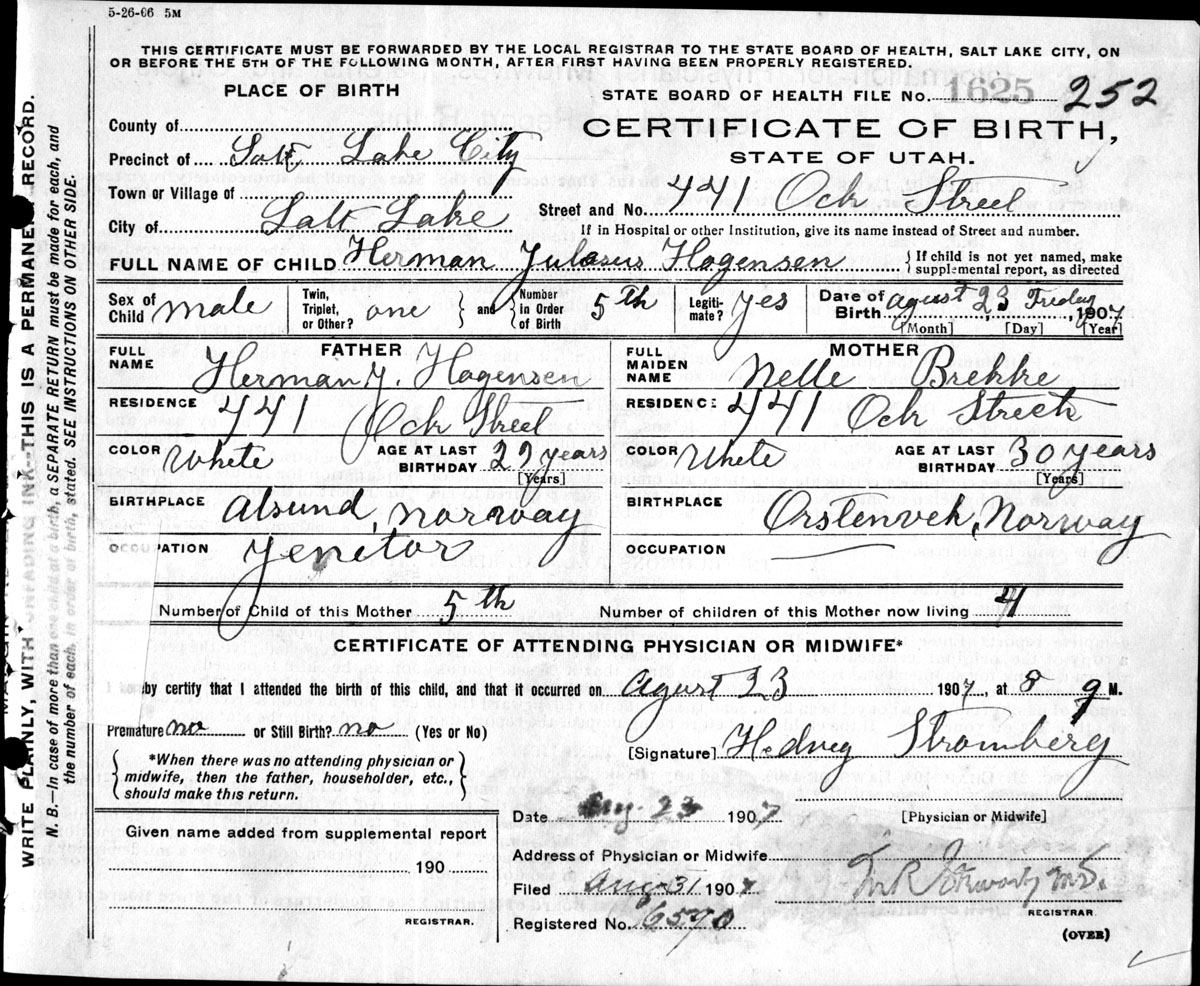 5-26-06 5M
THIS CERTIFICATE MUST BE FORWARDED BY THE LOCAL REGISTRAR TO THE STATE BOARD OF HEALTH, SALT LAKE CITY, ON
OR BEFORE THE 5TH OF THE FOLLOWING MONTH, AFTER FIRST HAVING BEEN PROPERLY REGISTERED.
PLACE OF BIRTH
STATE BOARD OF HEALTH FILE No. 1625 252
County of
CERTIFICATE OF BIRTH,
STATE OF UTAH.
Precinct of Salt Lake City
Town or Village of
Street and No. 441 Ock Street
City of Salt Lake
If in Hospital or other Institution, give its name instead of Street and number.
FULL NAME OF CHILD Herman Julasus Hogensen
If child is not yet named, make
supplemental report, as directed
Sex of Child male
Twin, Triplet, or Other? one and Number in Order of Birth 5th
Legiti-mate? yes
Date of Birth agust 23 Friday 1907
[Month] [Day] [Year]
FATHER
FULL NAME Herman J. Hogensen
RESIDENCE 441 Ock Street
COLOR White AGE AT LAST BIRTHDAY 29 years
[Years]
BIRTHPLACE Alsund, Norway
OCCUPATION Yenitor
MOTHER
FULL MAIDEN NAME Nelle Brekke
RESIDENCE 441 Ock Street
COLOR White AGE AT LAST BIRTHDAY 30 years
[Years]
BIRTHPLACE Orstenvek, Norway
OCCUPATION
Number of Child of this Mother 5th Number of children of this Mother now living 4
CERTIFICATE OF ATTENDING PHYSICIAN OR MIDWIFE*
by certify that I attended the birth of this child, and that it occurred on Agust 23 1907, at 8 M.
Premature no or Still Birth? no (Yes or No)
[Signature] Hedveg Stromberg
*When there was no attending physician or
midwife, then the father, householder, etc.,
should make this return.
Date Aug 23 1907
[Physician or Midwife]
Given name added from supplemental report
190
REGISTRAR.
Address of Physician or Midwife
Filed Aug 31 1907
REGISTRAR.
Registered No. 6570
(OVER)
WRITE PLAINLY, WITH UNFADING INK--THIS IS A PERMANENT RECORD.
N. B.—In case of more than one child at a birth, a SEPARATE RETURN must be made for each, and
the number of each, in order of birth, stated. SEE INSTRUCTIONS ON OTHER SIDE.